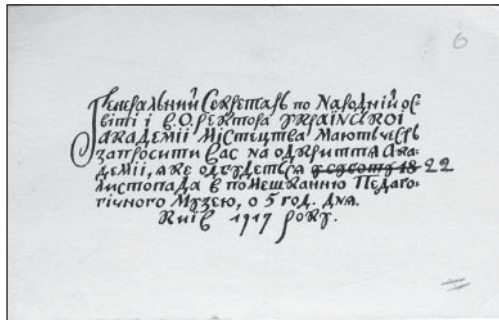 6
Генеральний Секретарь по Народній ос-
віті і в.о.ректора Української
Академії Містецтва мають честь
запросити Вас на одкриття Ака-
демії, яке одбудеться у суботу 18 22
листопада в помешканню Педаго-
гічного Музею, о 5 год. дня.
Київ 1917 року.